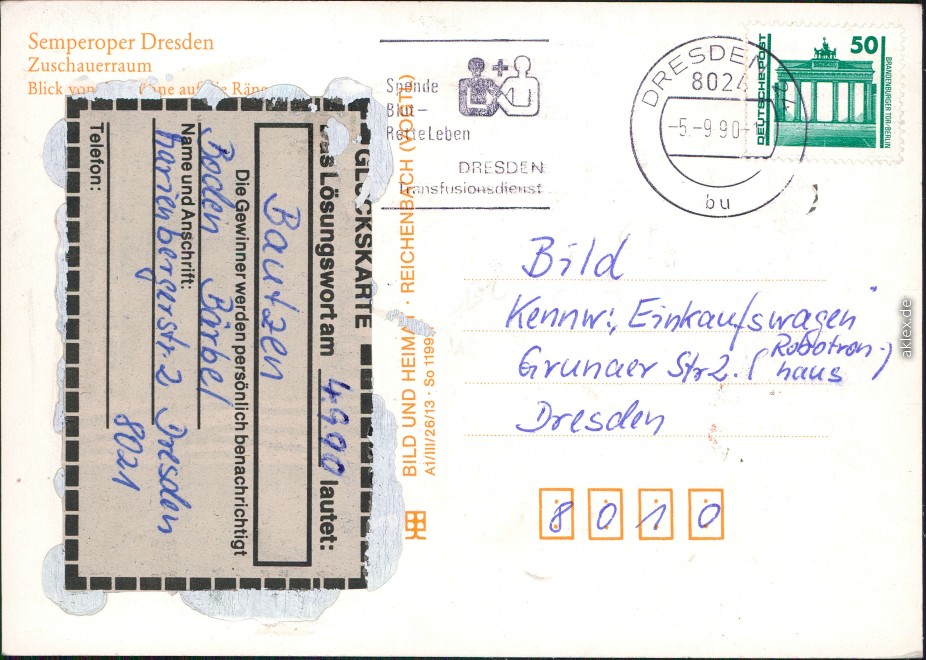 Semperoper Dresden
Zuschauerraum
Blick von
GLÜCKSKARTE
Das Lösungswort am 4.9.90 lautet:
Bautzen
Die Gewinner werden persönlich benachrichtigt
Boden Bärbel
Name und Anschrift:
Dresden
8021
Telefon:
BILD UND HEIMAT · REICHENBACH (VOGTL)
A1/III/26/13 · So 11999
Spende
Blut-
Rette Leben
DRESDEN
Transfusionsdienst
DRESDEN
-5.-9.90-
bu
DEUTSCHE POST
50
BRANDENBURGER TOR · BERLIN
Bild
Kennw.: „Einkaufswagen“
Grunaer Str 2. (Robotron-
haus)
Dresden
8 0 1 0
aklex.de